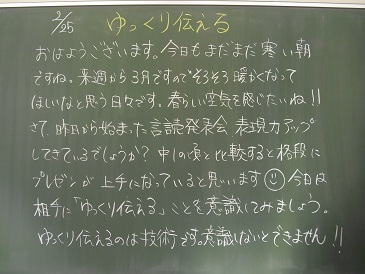 2/25 ゆっくり伝える
おはようございます。今日もまだまだ寒い朝
ですね。来週から3月ですのでそろそろ暖かくなって
ほしいなと思う日々です。春らしい空気を感じたいね!!
さて、昨日から始まった音読発表会 表現力アップ
してきているでしょうか?中1の頃と比較すると格段に
プレゼンが上手になっていると思います☺今日は
相手に「ゆっくり伝える」ことを意識してみましょう。
ゆっくり伝えるのは技術です。意識しないとできません!!